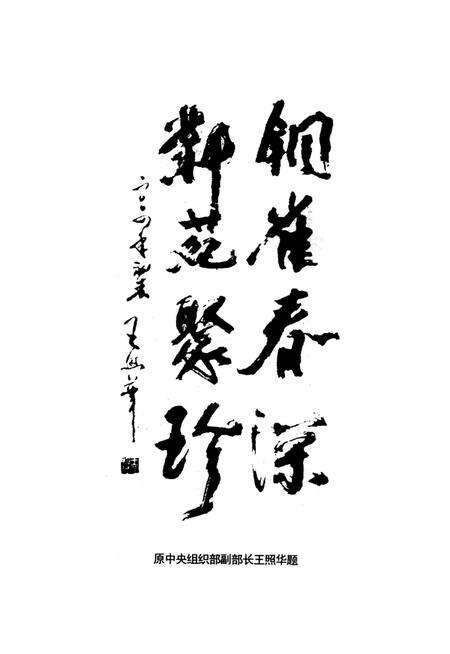 铜雀春深
鄴苑聚珍
二〇〇四年
王照华
原中央组织部副部长王照华题